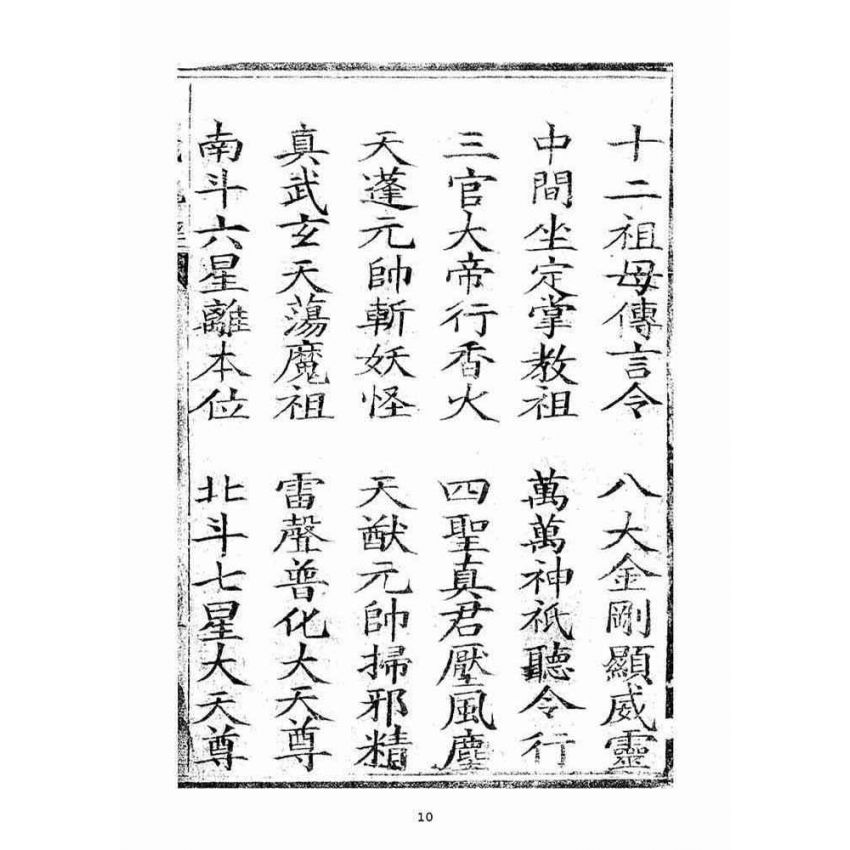 十二祖母傳言令　八大金剛顯威靈
中間坐定掌教祖　萬萬神祇聽令行
三官大帝行香火　四聖真君壓風塵
天蓬元帥斬妖怪　天猷元帥掃邪精
真武玄天蕩魔祖　雷聲普化大天尊
南斗六星離本位　北斗七星大天尊
10